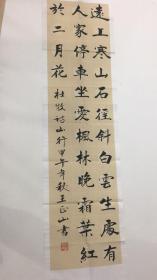 遠上寒山石徑斜白雲生處有
人家停車坐愛楓林晚霜葉紅
於二月花
杜牧詩山行甲午年秋王正山書